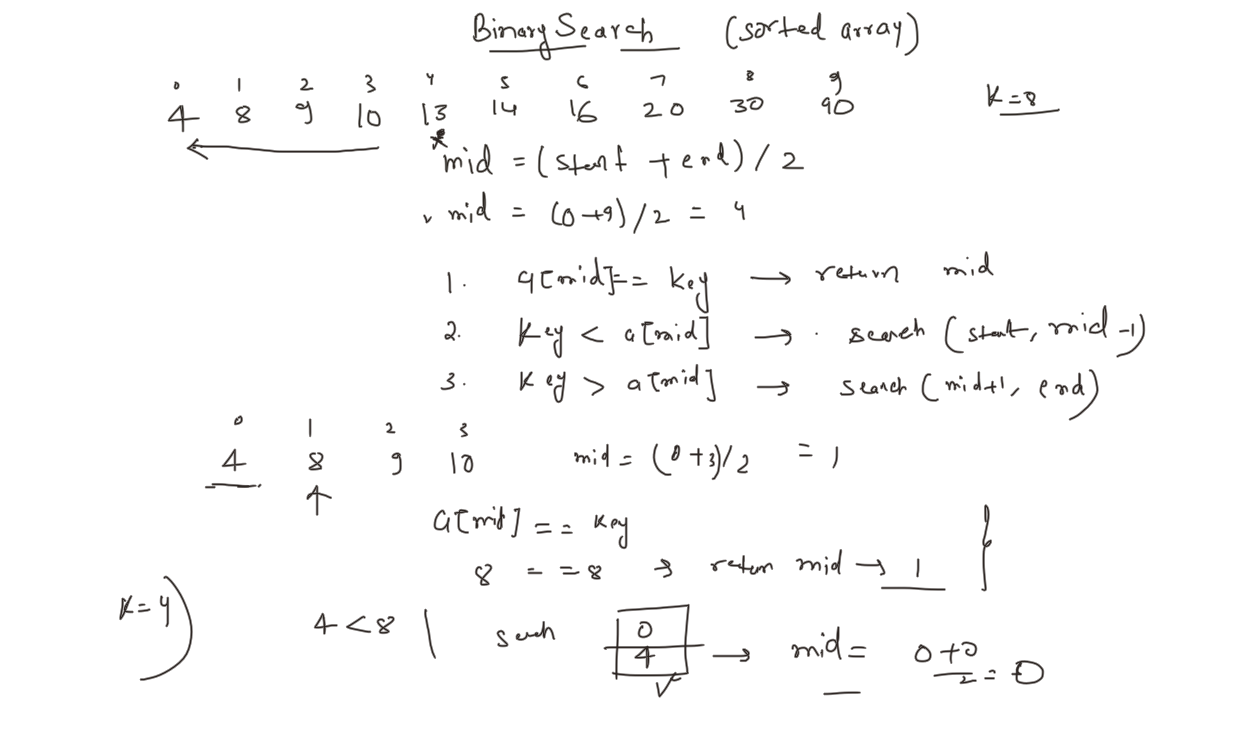 Binary Search (sorted array)
0 1 2 3 4 5 6 7 8 9
4 8 9 10 13 14 16 20 30 90 K=8
mid = (start + end) / 2
mid = (0+9)/2 = 4
1. a[mid]== key → return mid
2. key < a[mid] → search (start, mid-1)
3. key > a[mid] → search (mid+1, end)
0 1 2 3
4 8 9 10 mid = (0+3)/2 = 1
a[mid] == key
8 == 8 → return mid → 1
K=4) 4<8 | search 0 → mid = 0+0/2 = 0
4